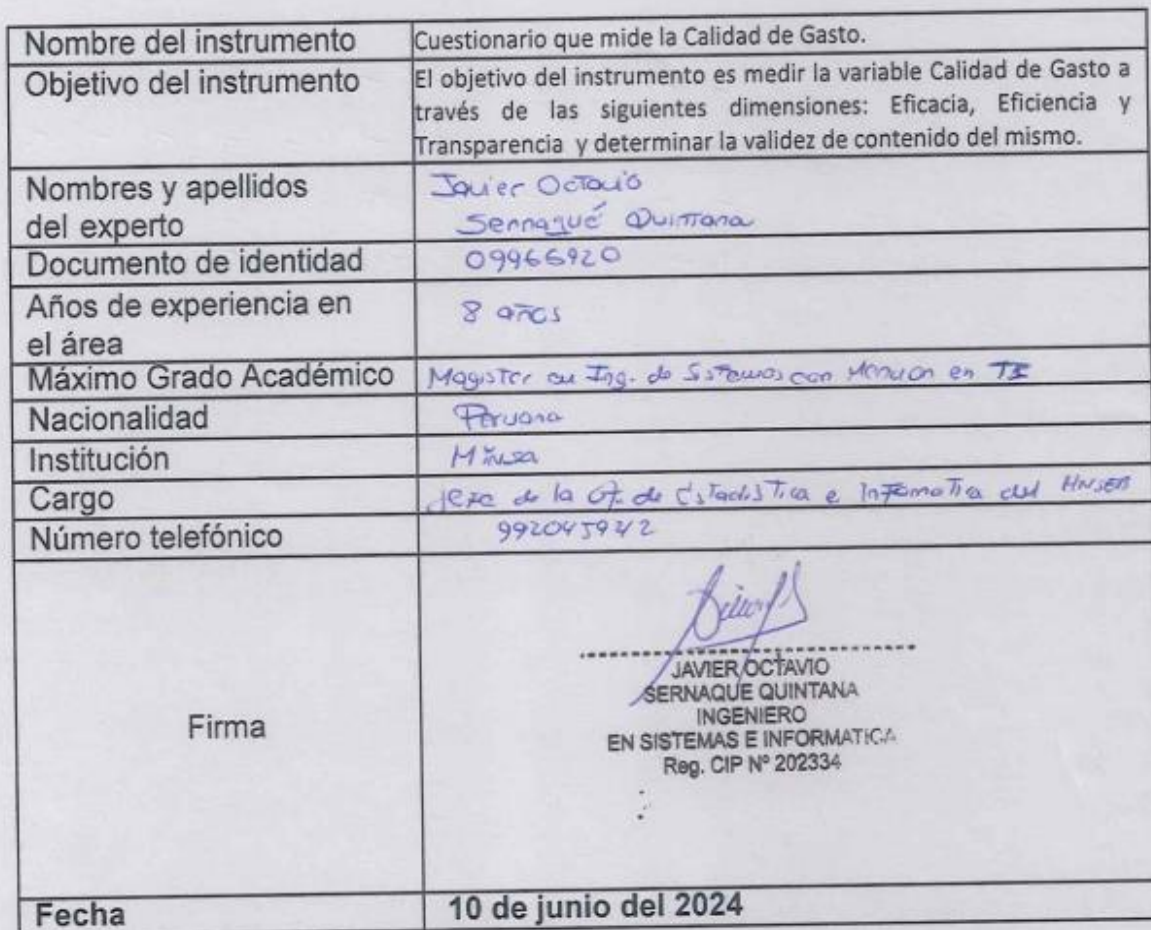 Nombre del instrumento Cuestionario que mide la Calidad de Gasto.
Objetivo del instrumento El objetivo del instrumento es medir la variable Calidad de Gasto a
través de las siguientes dimensiones: Eficacia, Eficiencia y
Transparencia y determinar la validez de contenido del mismo.
Nombres y apellidos Javier Octavio
del experto Sernaqué Quintana
Documento de identidad 09966920
Años de experiencia en 8 años
el área
Máximo Grado Académico Magister en Ing. de Sistemas con Mencion en TI
Nacionalidad Peruana
Institución Minsa
Cargo Jefe de la Of. de Estadistica e Informatica del HNSEB
Número telefónico 992045942
Firma
JAVIER OCTAVIO
SERNAQUE QUINTANA
INGENIERO
EN SISTEMAS E INFORMATICA
Reg. CIP Nº 202334
Fecha 10 de junio del 2024